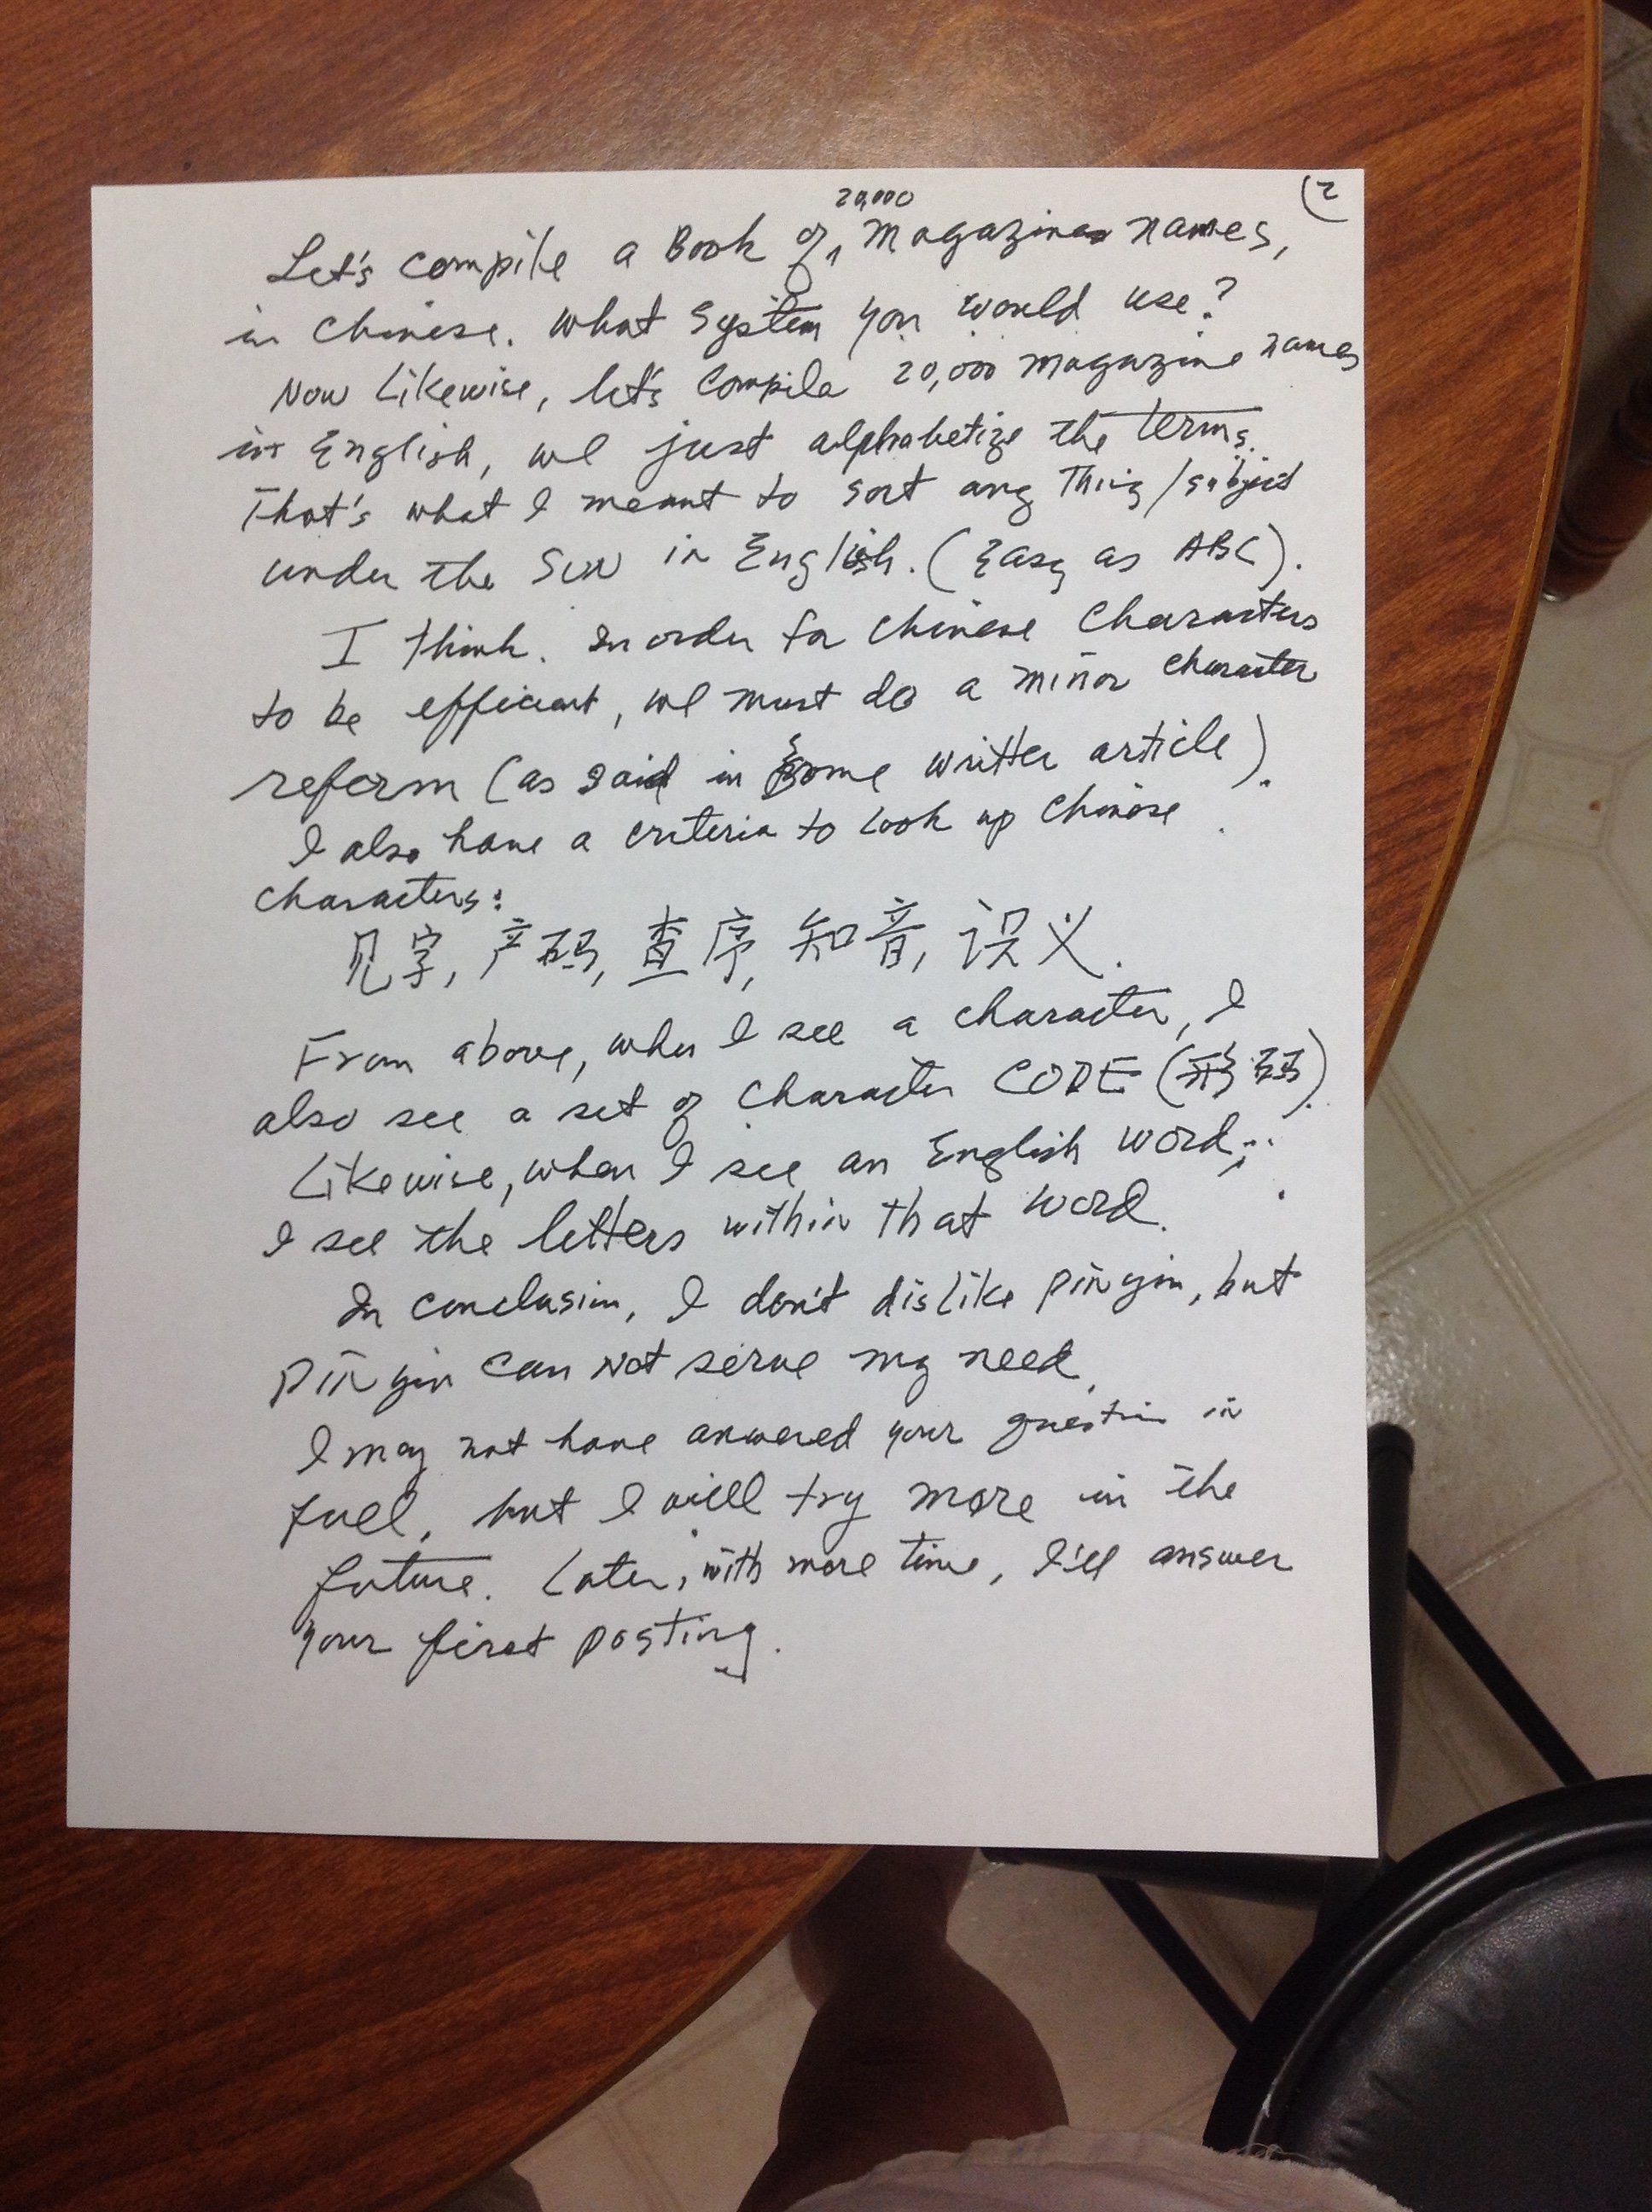 (2
20,000
Let's compile a Book of ‸ Magazine names,
in Chinese. What system you would use?
Now Likewise, let's compile 20,000 magazine names
in English, we just alphabetize the terms.
That's what I meant to sort any Thing/subject
under the Sun in English. (Easy as ABC).
I think. In order for Chinese Characters
to be efficient, we must do a minor character
reform (as said in some writter article).
I also have a criteria to look up Chinese
characters:
见字, 产码, 查序, 知音, 识义.
From above, when I see a character, I
also see a set of Character CODE (形码).
Likewise, when I see an English word,
I see the letters within that word.
In conclusion, I don't dislike pinyin, but
pinyin can Not serve my need.
I may not have answered your question in
full, but I will try more in the
future. Later, with more time, I'll answer
your first posting.